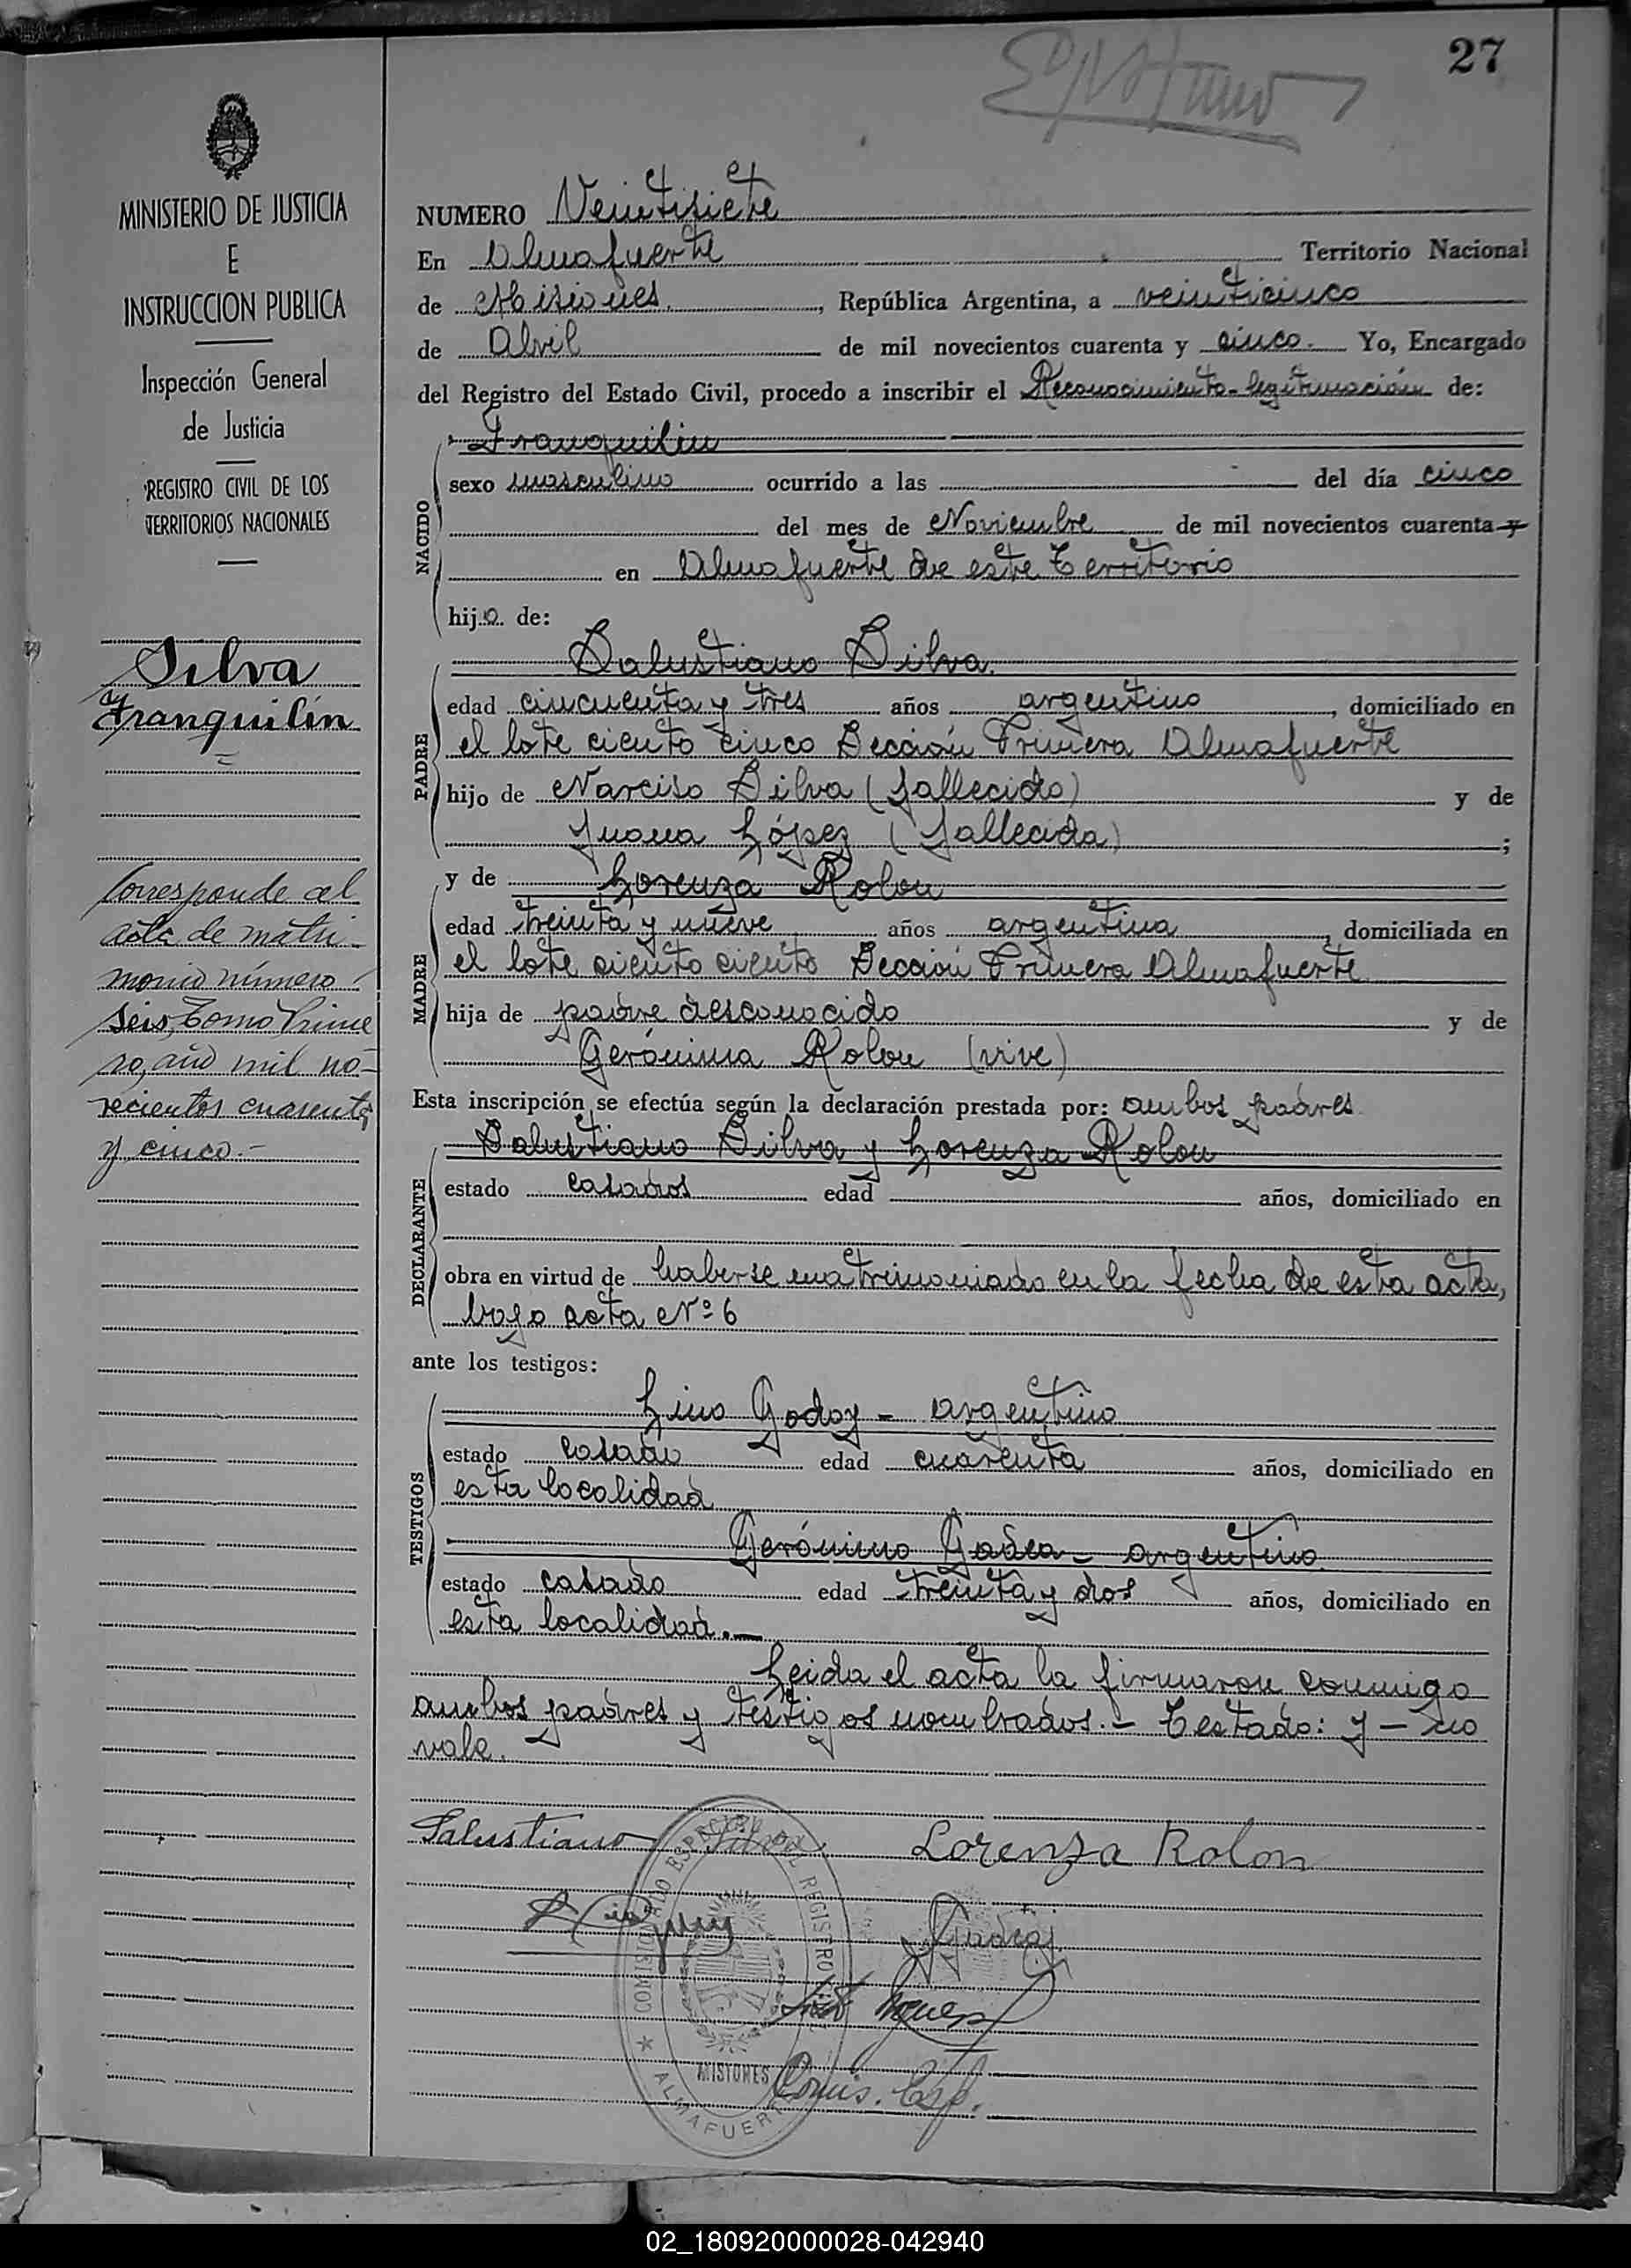 27
MINISTERIO DE JUSTICIA
E
INSTRUCCION PUBLICA
Inspección General
de Justicia
REGISTRO CIVIL DE LOS
TERRITORIOS NACIONALES
Silva
Franquilín
Corresponde al
acta de matri-
monio número
seis, Tomo Prime
ro, año mil no-
vecientos cuarenta
y cinco.-
NUMERO Veintisiete
En Almafuerte Territorio Nacional
de Misiones, República Argentina, a veinticinco
de Abril de mil novecientos cuarenta y cinco. Yo, Encargado
del Registro del Estado Civil, procedo a inscribir el Reconocimiento-legitimación de:
NACIDO
Franquilin
sexo masculino ocurrido a las - del día cinco
del mes de Noviembre de mil novecientos cuarenta y
en Almafuerte de este Territorio
hijo de:
PADRE
Salustiano Silva.
edad cincuenta y tres años argentino, domiciliado en
el lote ciento cinco Sección Primera Almafuerte
hijo de Narciso Silva (fallecido) y de
Juana López (fallecida);
y de Lorenza Rolon
MADRE
edad treinta y nueve años argentina, domiciliada en
el lote ciento ciento Sección Primera Almafuerte
hija de padre desconocido y de
Gerónima Rolon (vive)
Esta inscripción se efectúa según la declaración prestada por: ambos padres
DECLARANTE
Salustiano Silva y Lorenza Rolon
estado casados edad años, domiciliado en
obra en virtud de haberse matrimoniado en la fecha de esta acta,
bajo acta Nº 6
ante los testigos:
TESTIGOS
Lino Godoy - argentino
estado casado edad cuarenta años, domiciliado en
esta localidad
Gerónimo Gadea - argentino.
estado casado edad treinta y dos años, domiciliado en
esta localidad.-
Leida el acta la firmaron conmigo
ambos padres y testigos nombrados.- Testado: y - no
vale.
Salustiano Silva Lorenza Rolon
COMISIONADO ESPECIAL DEL REGISTRO
MISIONES
ALMAFUERTE
Comis. Esp.
02_180920000028-042940